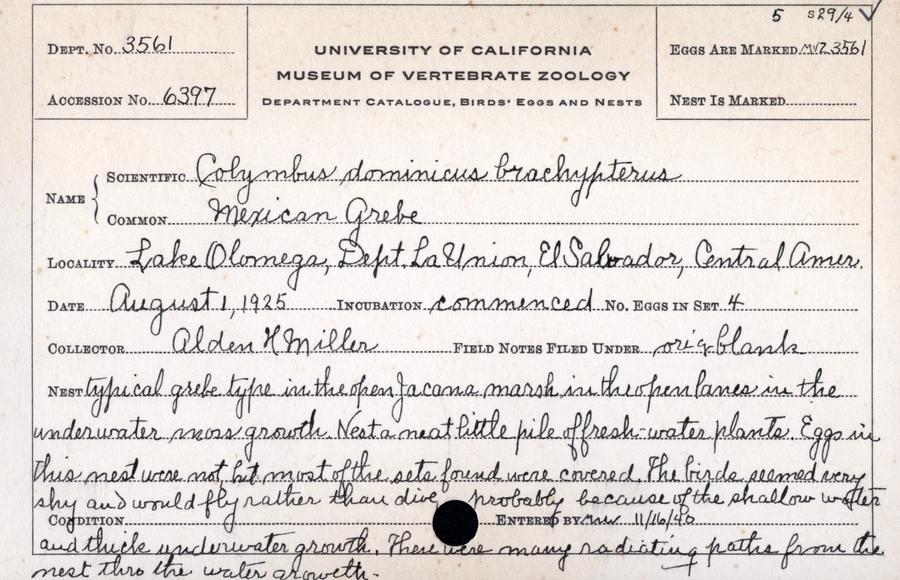 5 S29/4 ✓
DEPT. NO. 3561
UNIVERSITY OF CALIFORNIA
MUSEUM OF VERTEBRATE ZOOLOGY
DEPARTMENT CATALOGUE, BIRDS' EGGS AND NESTS
EGGS ARE MARKED MVZ 3561
ACCESSION NO. 6397
NEST IS MARKED
NAME
SCIENTIFIC Colymbus dominicus brachypterus
COMMON Mexican Grebe
LOCALITY Lake Olomega, Dept. La Union, El Salvador, Central Amer.
DATE August 1, 1925 INCUBATION commenced NO. EGGS IN SET 4
COLLECTOR Alden H Miller FIELD NOTES FILED UNDER orig blank
NEST typical grebe type in the open Jacana marsh in the open lanes in the
underwater moss growth. Nest a neat little pile of fresh-water plants. Eggs in
this nest were not, but most of the sets found were covered. The birds seemed very
shy and would fly rather than dive probably because of the shallow water
CONDITION ENTERED BY 11/16/40
and thick underwater growth. There were many radiating paths from the
nest thro the water growth.